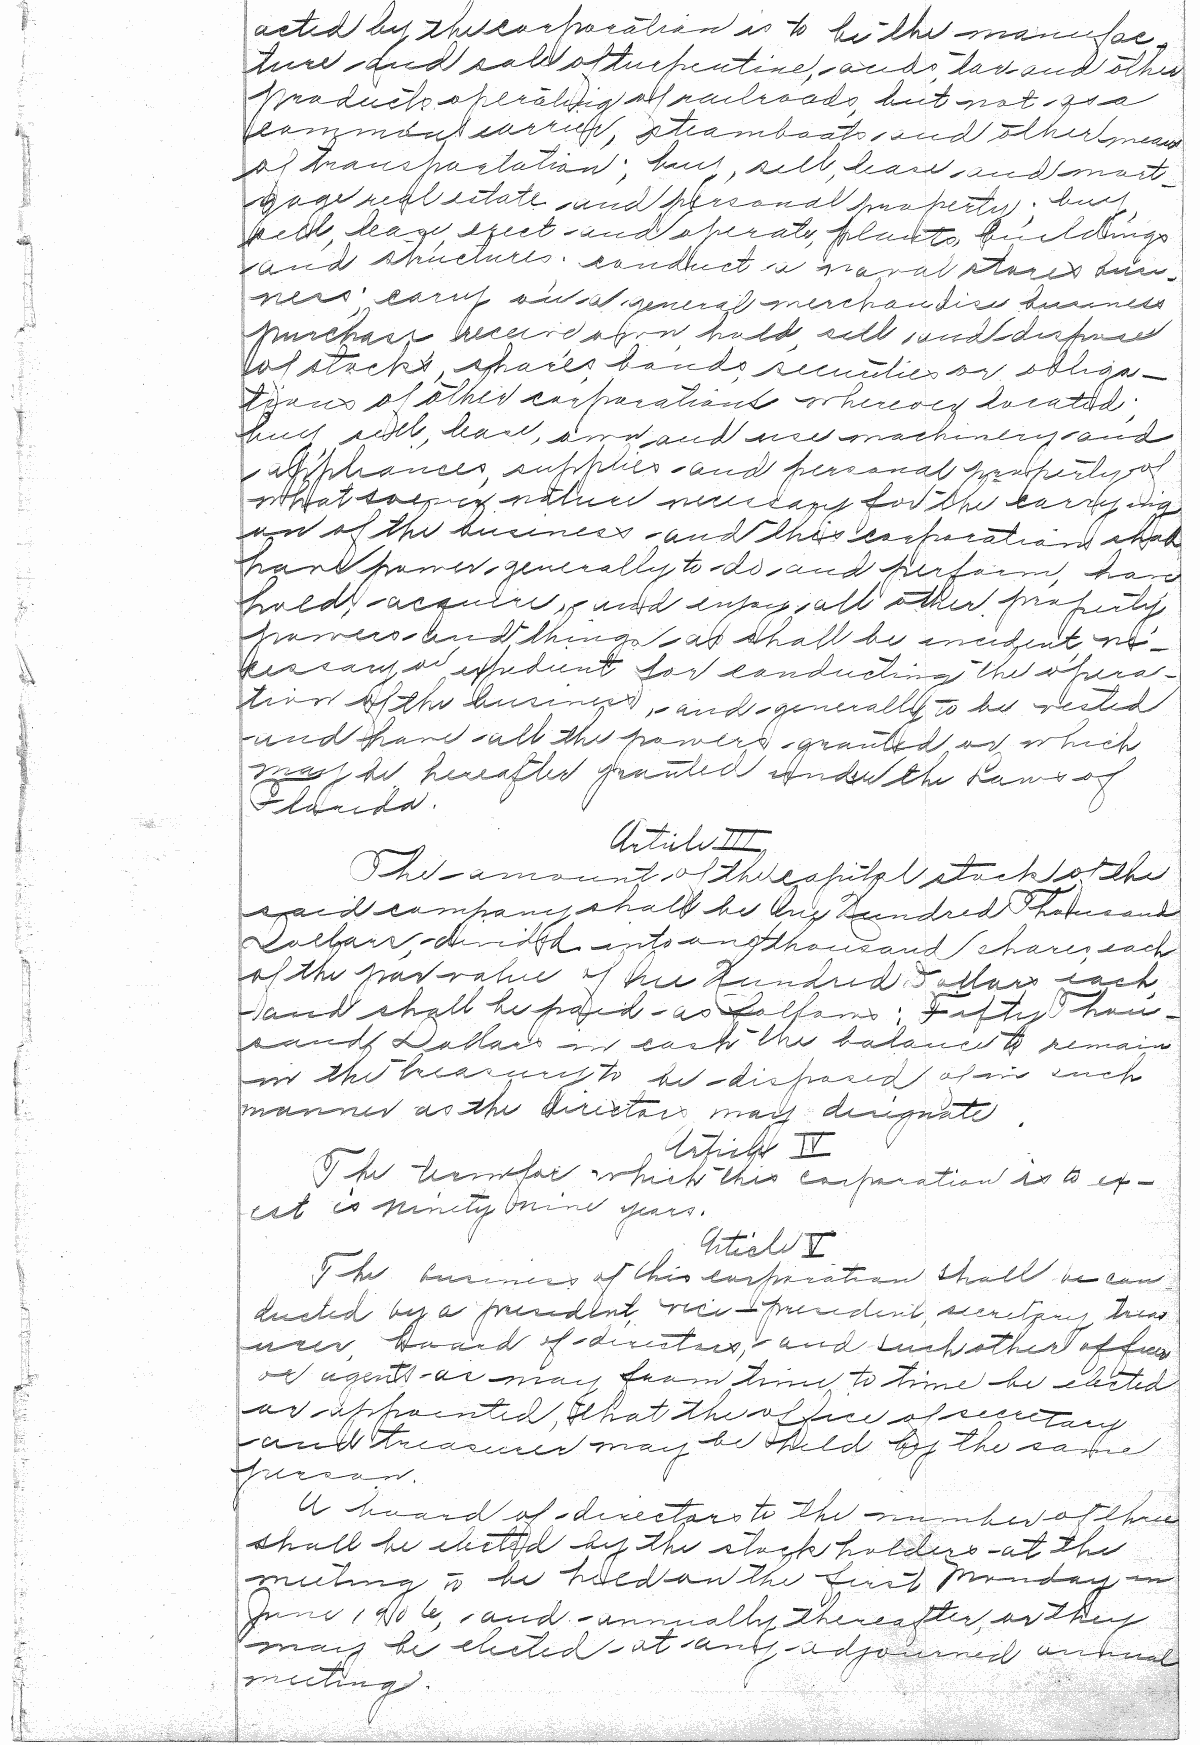 acted by the corporation is to be the manufac-
ture and sale of turpentine, and tar and other
products operating of railroads, but not as a
common carrier, steamboats and other means
of transportation; buy, sell, lease and mort-
gage real estate and personal property; buy,
sell, lease, erect and operate, plants, buildings
and structures. conduct a naval stores busi-
ness; carry on a general merchandise business
purchase receive own, hold, sell, and dispose
of stocks, shares, bonds, securities or obliga-
tions of other corporations wherever located;
buy, sell, lease, own and use machinery and
appliances, supplies and personal property of
whatsoever nature necessary for the carrying
on of the business and this corporation shall
have power generally to do and perform, have
hold, acquire, and enjoy all other property
powers and things as shall be incident, ne-
cessary or expedient for conducting the opera-
tion of the business, and generally to be vested
and have all the powers granted or which
may be hereafter granted under the Laws of
Florida.
Article III
The amount of the capital stock of the
said company shall be One Hundred Thousand
Dollars, divided into one thousand shares, each
of the par value of One Hundred Dollars each,
and shall be paid as follows: Fifty Thou-
sand Dollars in cash the balance to remain
in the treasury to be disposed of in such
manner as the directors may designate.
Article IV
The term for which this corporation is to ex-
ist is ninety nine years.
Article V
The business of this corporation shall be con
ducted by a president, vice-president, secretary, treas
urer, board of directors, and such other officers
or agents as may from time to time be elected
or appointed, that the office of secretary
and treasurer may be held by the same
person.
A board of directors to the number of three
shall be elected by the stock holders at the
meeting to be held on the first Monday in
June 1906, and annually thereafter, or they
may be elected at any adjourned annual
meeting.